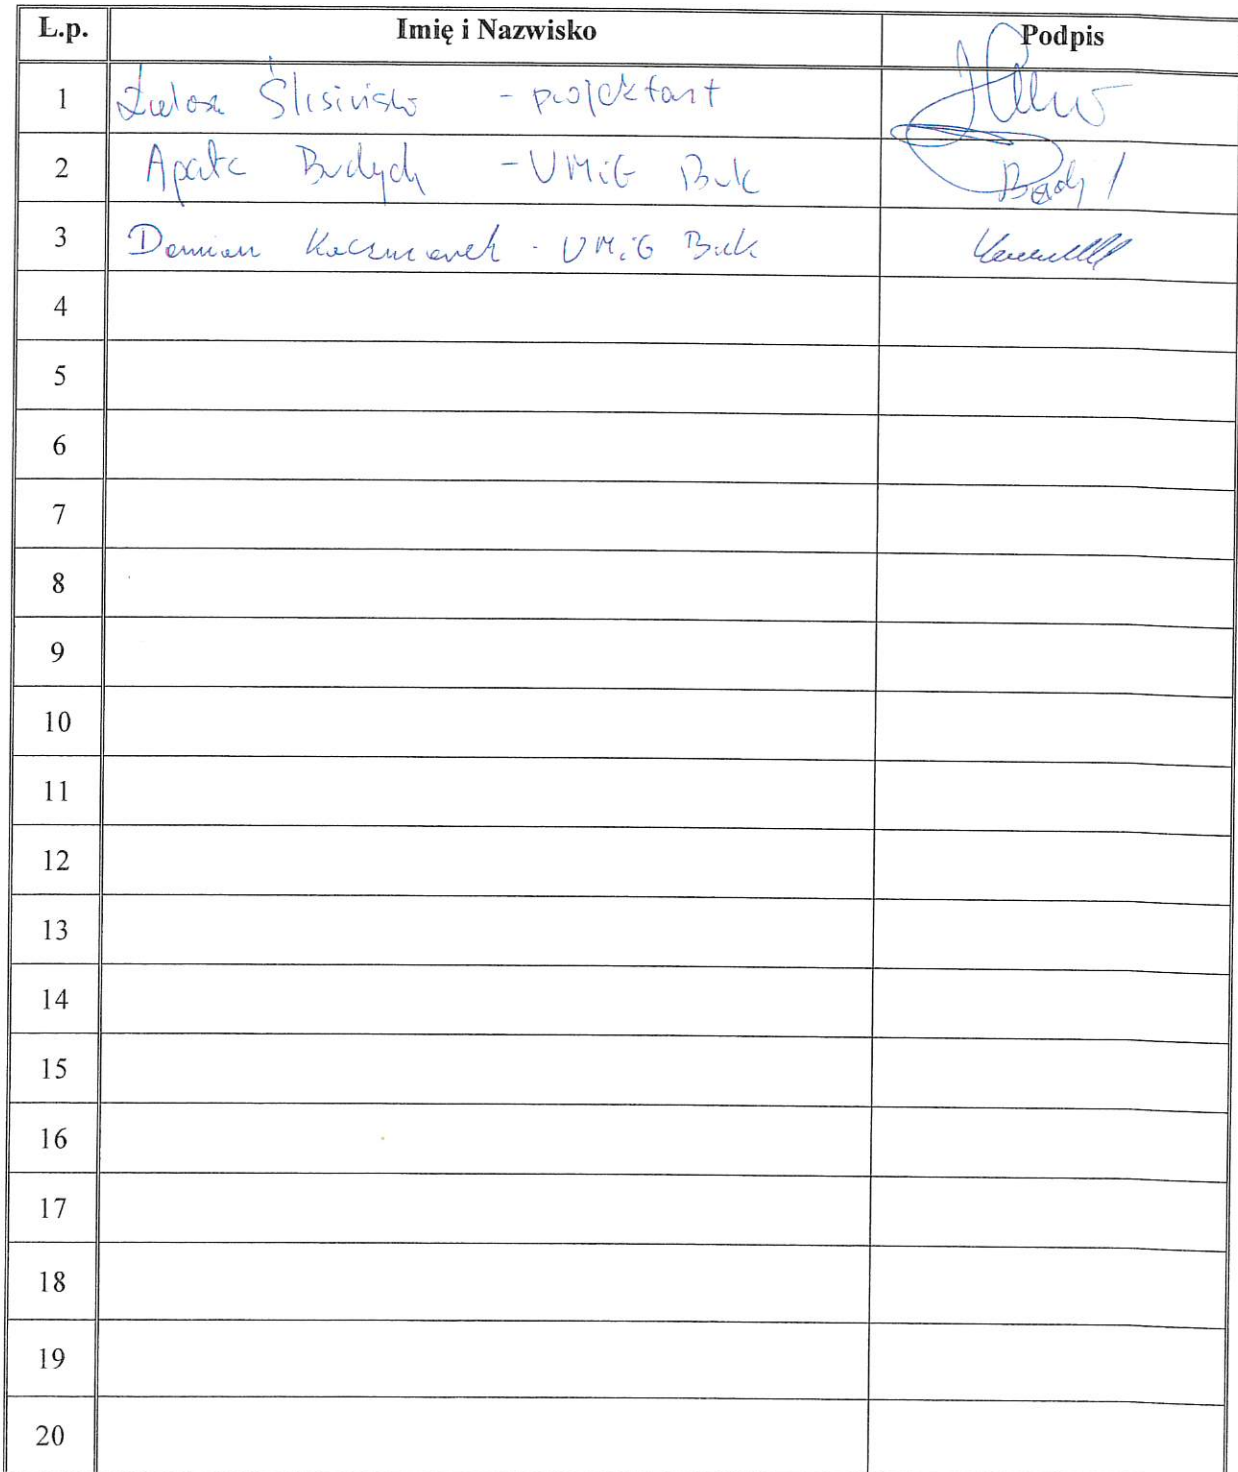 L.p. Imię i Nazwisko Podpis
1 Ślisiński - projektant
2 Budych - UMiG Buk
3 Damian Kaczmarek - UMiG Buk
4
5
6
7
8
9
10
11
12
13
14
15
16
17
18
19
20